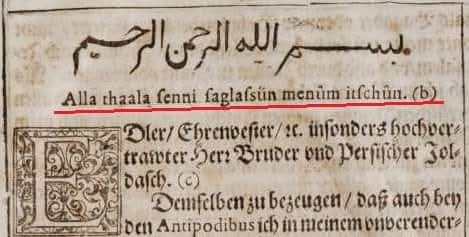 بسم الله الرحمن الرحيم
Alla thaala ſenni ſaglaſsün menům itſchůn. (b)
EDler/ Ehrenveſter/ ꝛc. inſonders hochver-
trawter Herr Bruder vnd Perſiſcher Jol-
daſch. (c)
Demſelben zu bezeugen/ daß auch bey
den Antipodibus ich in meinem vnverender-